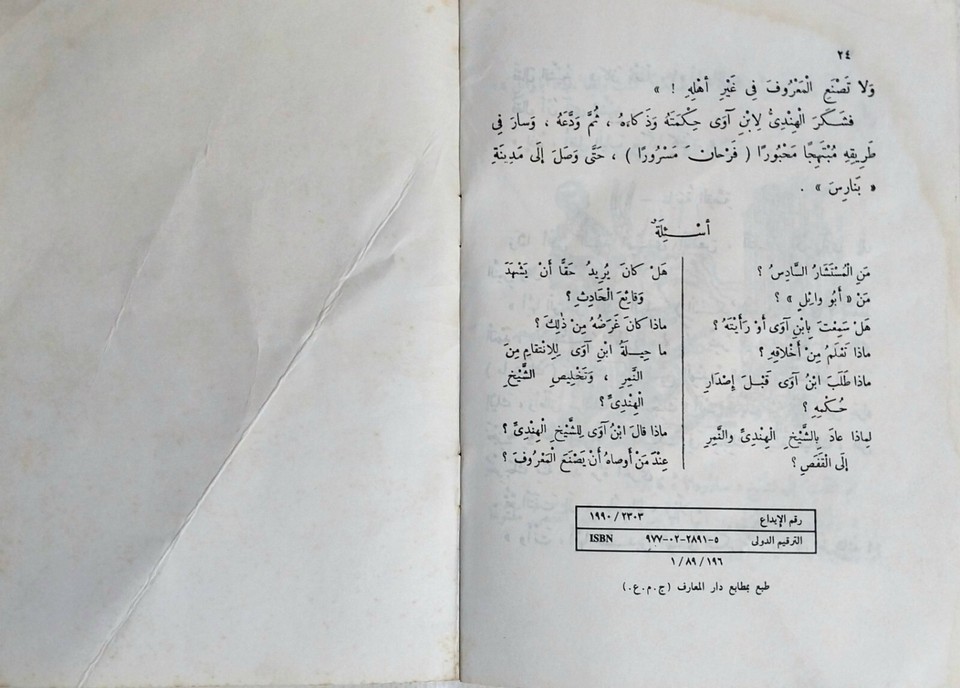 ٢٤
وَلا تَصْنَعِ الْمَعْرُوفَ فِي غَيْرِ أَهْلِهِ ! »
فَشَكَرَ الْهِنْدِيُّ لِابْنِ آوَى حِكْمَتَهُ وَذَكاءَهُ ، ثُمَّ وَدَّعَهُ ، وَسارَ فِي
طَرِيقِهِ مُبْتَهِجًا مَحْبُورًا ( فَرْحانَ مَسْرُورًا ) ، حَتَّى وَصَلَ إلَى مَدِينَةِ
« بَنارِسَ » .
أَسْئِلَةٌ
مَنِ الْمُسْتَشارُ السَّادِسُ ؟
مَنْ « أَبُو وائِلٍ » ؟
هَلْ سَمِعْتَ بِابْنِ آوَى أَوْ رَأَيْتَهُ ؟
ماذا تَعْلَمُ مِنْ أَخْلاقِهِ ؟
ماذا طَلَبَ ابْنُ آوَى قَبْلَ إِصْدَارِ
حُكْمِهِ ؟
لِماذا عادَ بِالشَّيْخِ الْهِنْدِيِّ والنَّمِرِ
إلَى الْقَفَصِ ؟
هَلْ كانَ يُرِيدُ حَقًّا أَنْ يَشْهَدَ
وَقائِعَ الْحَادِثِ ؟
ماذا كانَ غَرَضُهُ مِنْ ذٰلِكَ ؟
ما حِيلَةُ ابْنِ آوَى لِلِانْتِقامِ مِنَ
النَّمِرِ ، وَتَخْلِيصِ الشَّيْخِ
الْهِنْدِيِّ ؟
ماذا قالَ ابْنُ آوَى لِلشَّيْخِ الْهِنْدِيِّ ؟
عِنْدَ مَنْ أَوصاهُ أَنْ يَصْنَعَ الْمَعْرُوفَ ؟
رقم الإيداع ١٩٩٠/٢٣٠٣
الترقيم الدولى ISBN ٩٧٧-٠٢-٢٨٩١-٥
١/٨٩/١٩٦
طبع بمطابع دار المعارف (ج.م.ع.)